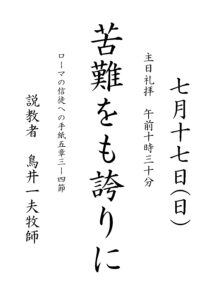 七月十七日(日)
主日礼拝 午前十時三十分
苦難をも誇りに
ローマの信徒への手紙五章三ー四節
説教者 鳥井一夫牧師